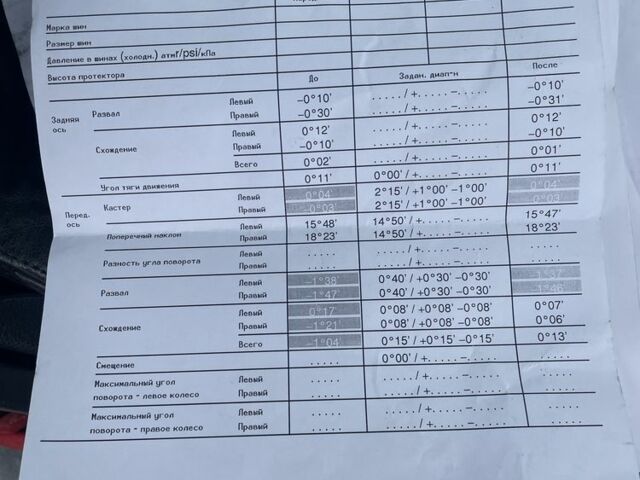 Марка шин
Размер шин
Давление в шинах (холодн.) атмr/psi/кПа
Высота протектора До Задан. диап-н После
Задняя ось Развал Левый −0°10' . . . . . / +. . . . . −. . . . . −0°10'
Правый −0°30' . . . . . / +. . . . . −. . . . . −0°31'
Схождение Левый 0°12' . . . . . / +. . . . . −. . . . . 0°12'
Правый −0°10' . . . . . / +. . . . . −. . . . . −0°10'
Всего 0°02' . . . . . / +. . . . . −. . . . . 0°01'
Угол тяги движения 0°11' 0°00' / +. . . . . −. . . . . 0°11'
Перед. ось Кастер Левый 0°04' 2°15' / +1°00' −1°00' 0°04'
Правый −0°03' 2°15' / +1°00' −1°00' −0°03'
Поперечный наклон Левый 15°48' 14°50' / +. . . . . −. . . . . 15°47'
Правый 18°23' 14°50' / +. . . . . −. . . . . 18°23'
Разность угла поворота Левый . . . . . . . . . . / +. . . . . −. . . . . . . . . .
Правый . . . . . . . . . . / +. . . . . −. . . . . . . . . .
Развал Левый −1°38' 0°40' / +0°30' −0°30' −1°37'
Правый −1°47' 0°40' / +0°30' −0°30' −1°46'
Схождение Левый 0°17' 0°08' / +0°08' −0°08' 0°07'
Правый −1°21' 0°08' / +0°08' −0°08' 0°06'
Всего −1°04' 0°15' / +0°15' −0°15' 0°13'
Смещение . . . . . 0°00' / +. . . . . −. . . . . . . . . .
Максимальный угол Левый . . . . . . . . . . / +. . . . . −. . . . . . . . . .
поворота - левое колесо Правый . . . . . . . . . . / +. . . . . −. . . . . . . . . .
Максимальный угол Левый . . . . . . . . . . / +. . . . . −. . . . . . . . . .
поворота - правое колесо Правый . . . . . . . . . . / +. . . . . −. . . . . . . . . .